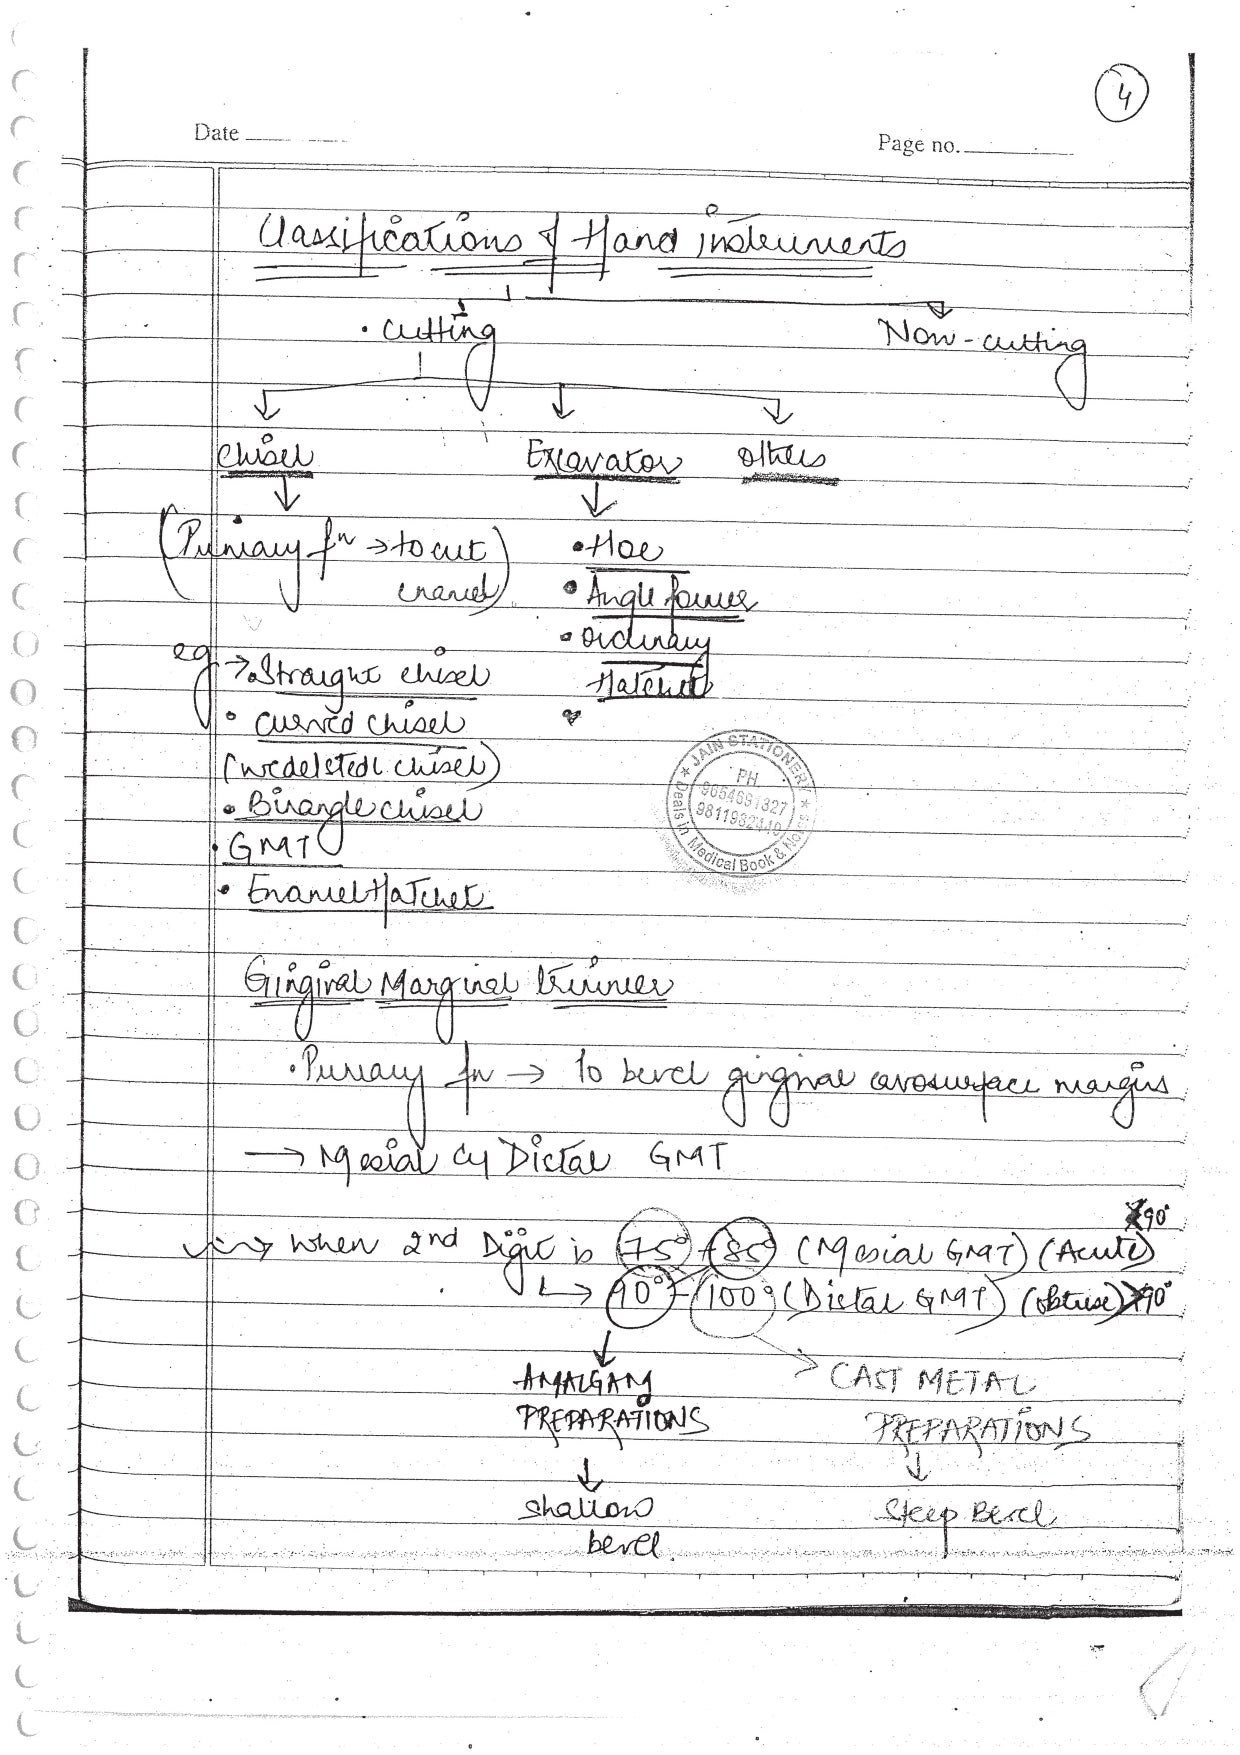 4
Date
Page no.
Classifications of Hand instruments
• Cutting
Non-cutting
Chisel Excavator others
(Primary fn → to cut
enamel)
• Hoe
• Angle former
• Ordinary
Hatchet
eg → • Straight chisel
• curved chisel
(wedelstedt chisel)
• Binangle chisel
• GMT
• Enamel Hatchet
★ JAIN STATIONERY ★
PH
9654691327
9811982440
Deals in Medical Book & Notes
Gingival Marginal trimmer
• Primary fn → to bevel gingival cavosurface margins
→ Mesial Distal GMT
<90°
→ when 2nd Digit is 75° - 85° (Mesial GMT) (Acute)
→ 90° - 100° (Distal GMT) (obtuse) >90°
AMALGAM
PREPARATIONS
→ CAST METAL
PREPARATIONS
shallow
bevel
Steep Bevel